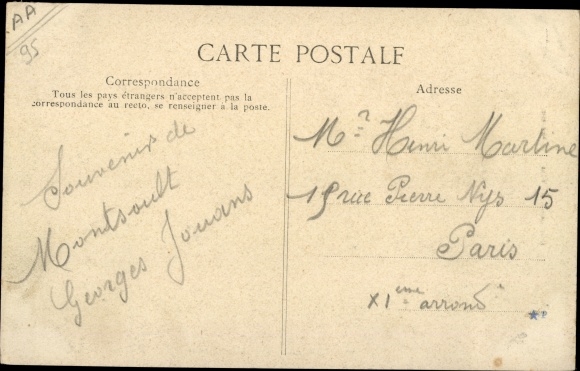 AA
95
CARTE POSTALE
Correspondance
Tous les pays étrangers n'acceptent pas la
correspondance au recto, se renseigner à la poste.
Souvenir de
Montsoult
Georges Jouans
Adresse
Mr Henri Martine
15 rue Pierre Nys 15
Paris
XIeme arrond